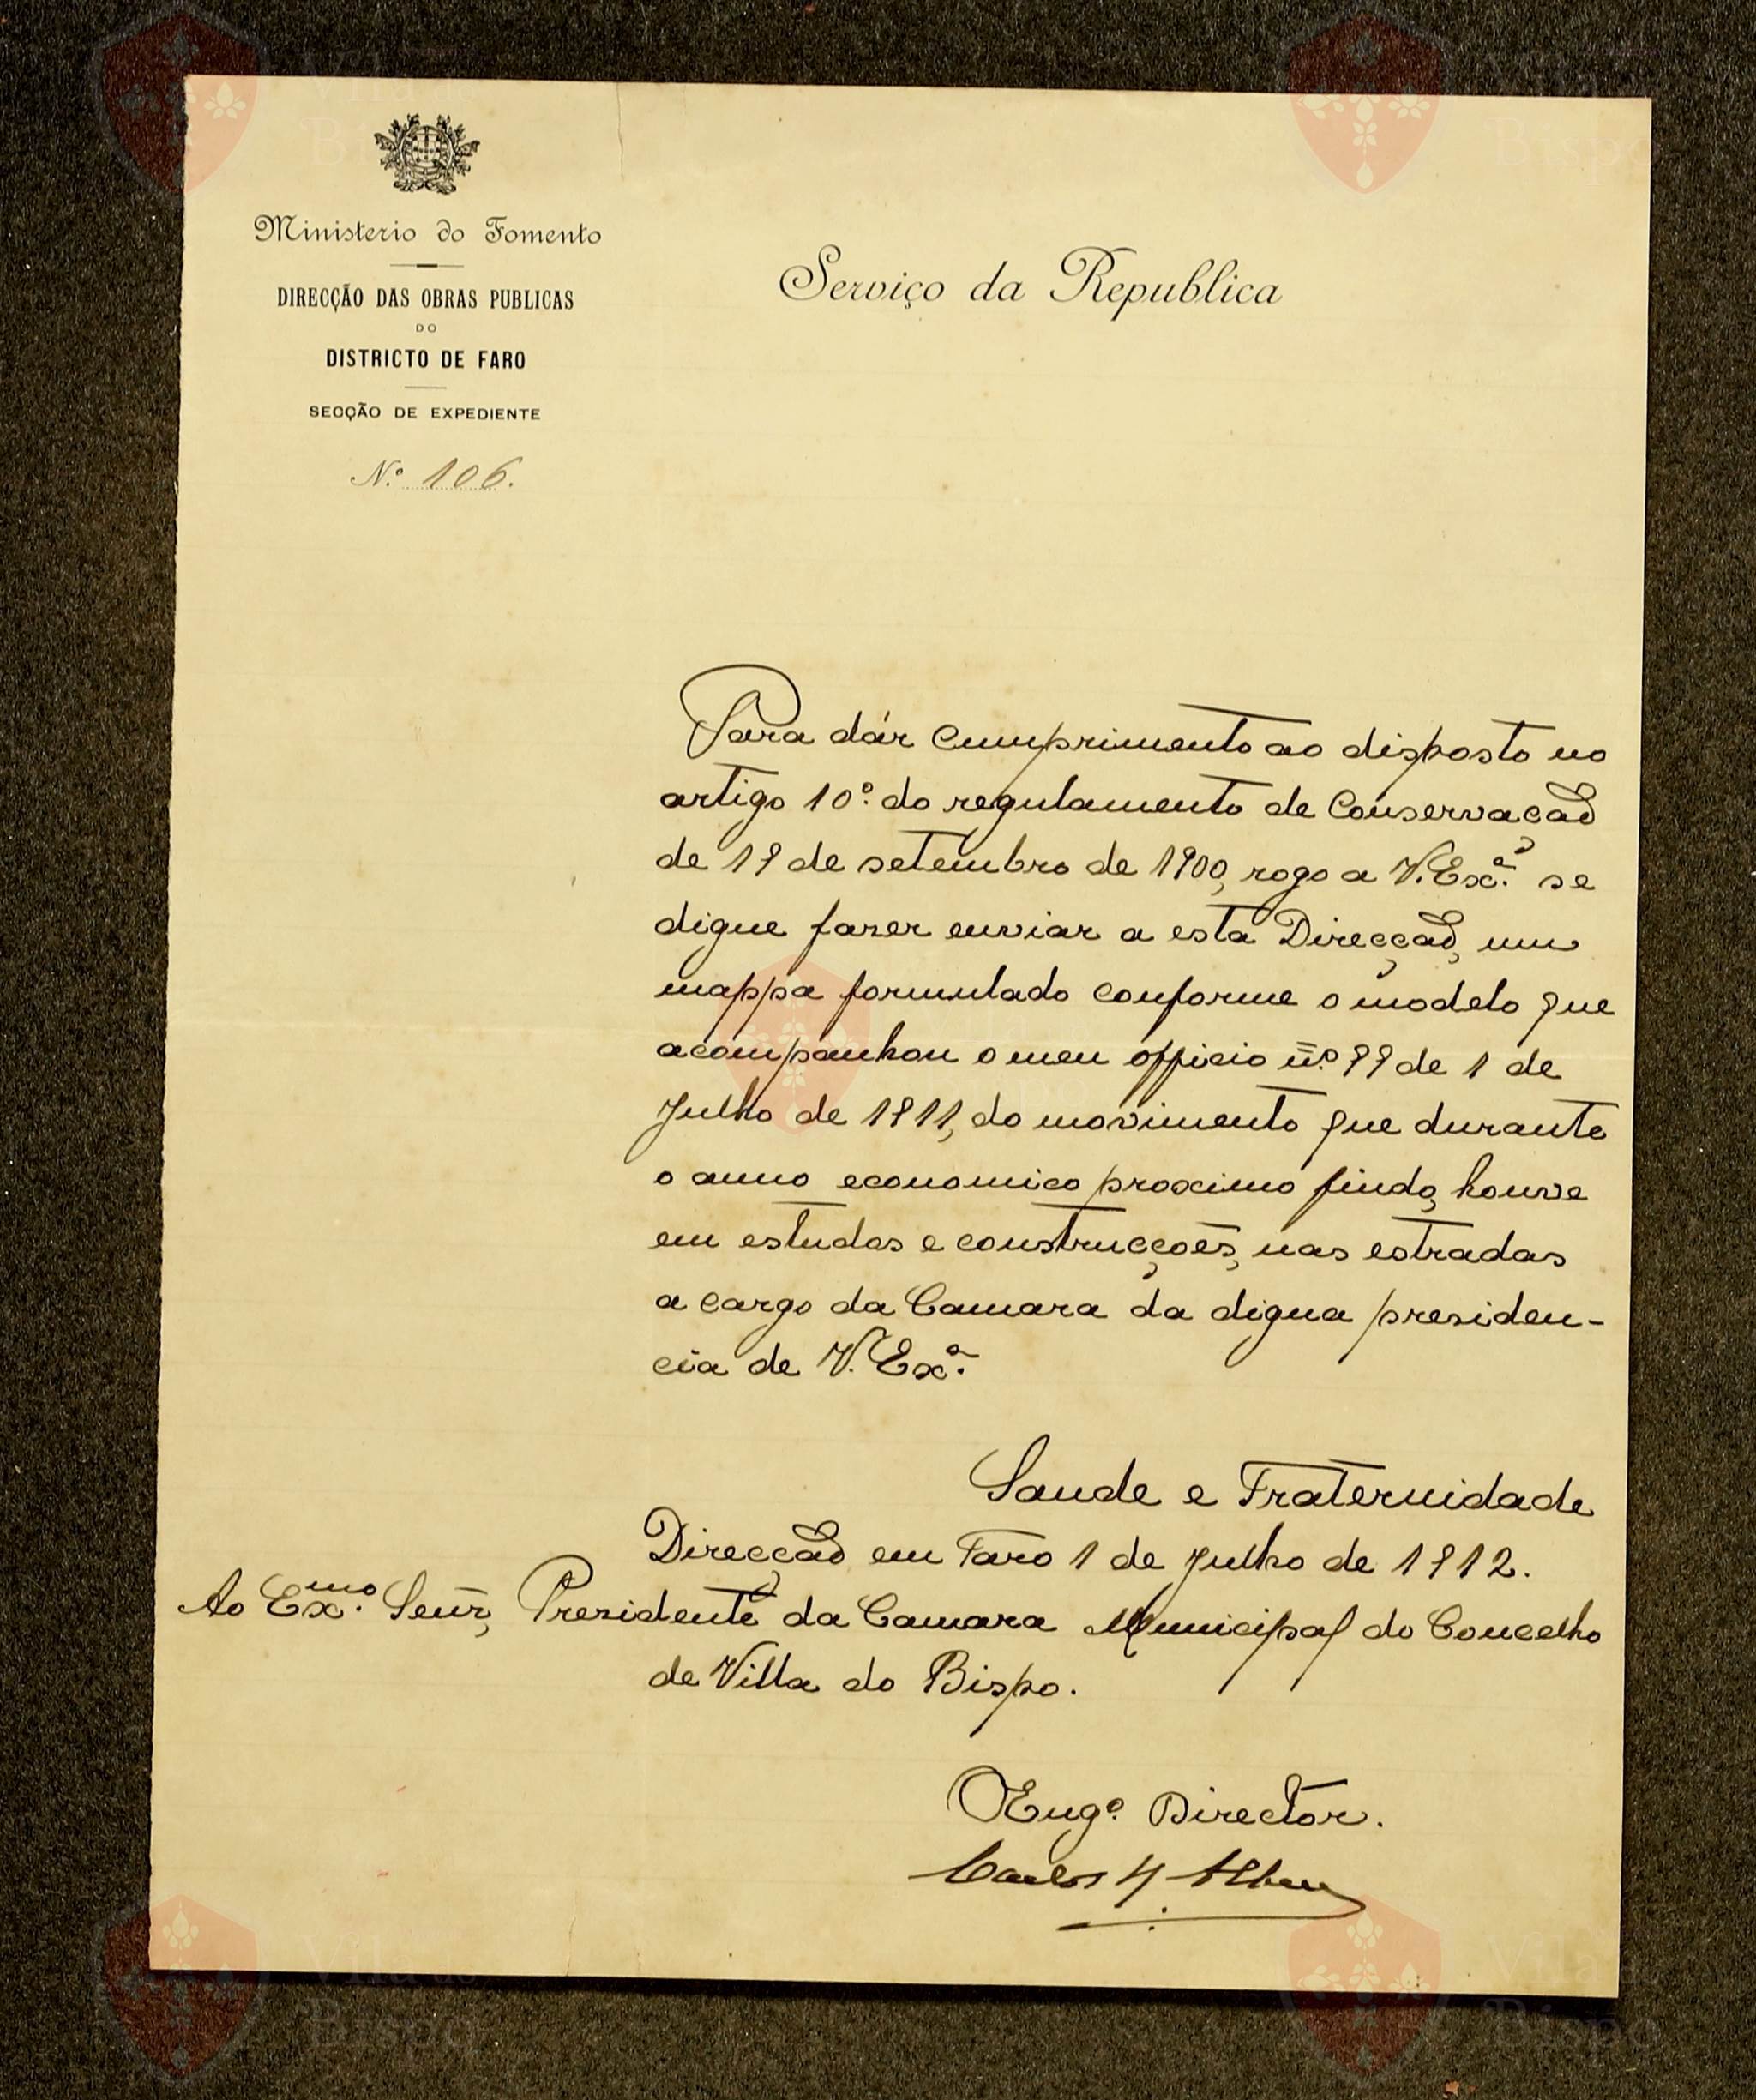 Ministerio do Fomento
DIRECÇÃO DAS OBRAS PUBLICAS
DO
DISTRICTO DE FARO
SECÇÃO DE EXPEDIENTE
N.º 106.
Serviço da Republica
Para dár cumprimento ao disposto no
artigo 10.º do regulamento de Conservação
de 19 de setembro de 1900, rogo a V. Ex.ª se
digne fazer enviar a esta Direcção, um
mappa formulado conforme o modelo que
acompanhou o meu officio n.º 99 de 1 de
Julho de 1911, do movimento que durante
o anno economico proximo findo, houve
em estudos e construcções, nas estradas
a cargo da Camara da digna presiden-
cia de V. Ex.ª
Saude e Fraternidade
Direcção em Faro 1 de Julho de 1912.
Ao Ex.mo Senr, Presidente da Camara Municipal do Concelho
de Villa do Bispo.
O Eng.º Director.
Carlos
Vila do
Bispo
Bispo
Vila do
Bispo
Vila do
Bispo